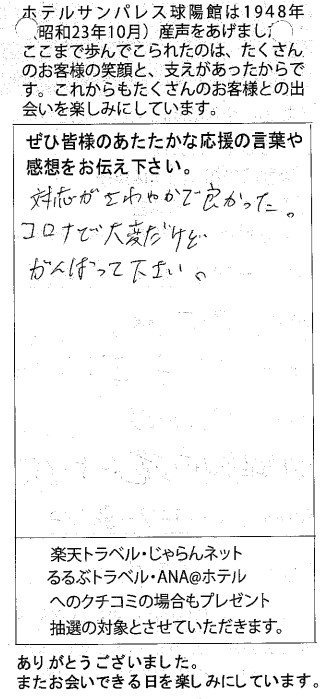 ホテルサンパレス球陽館は1948年
(昭和23年10月）産声をあげまし
ここまで歩んでこられたのは、たくさん
のお客様の笑顔と、支えがあったからで
す。これからもたくさんのお客様との出
会いを楽しみにしています。
ぜひ皆様のあたたかな応援の言葉や
感想をお伝え下さい。
対応がさわやかで良かった。
コロナで大変だけど
がんばって下さい。
楽天トラベル・じゃらんネット
るるぶトラベル・ANA@ホテル
へのクチコミの場合もプレゼント
抽選の対象とさせていただきます。
ありがとうございました。
またお会いできる日を楽しみにしています。